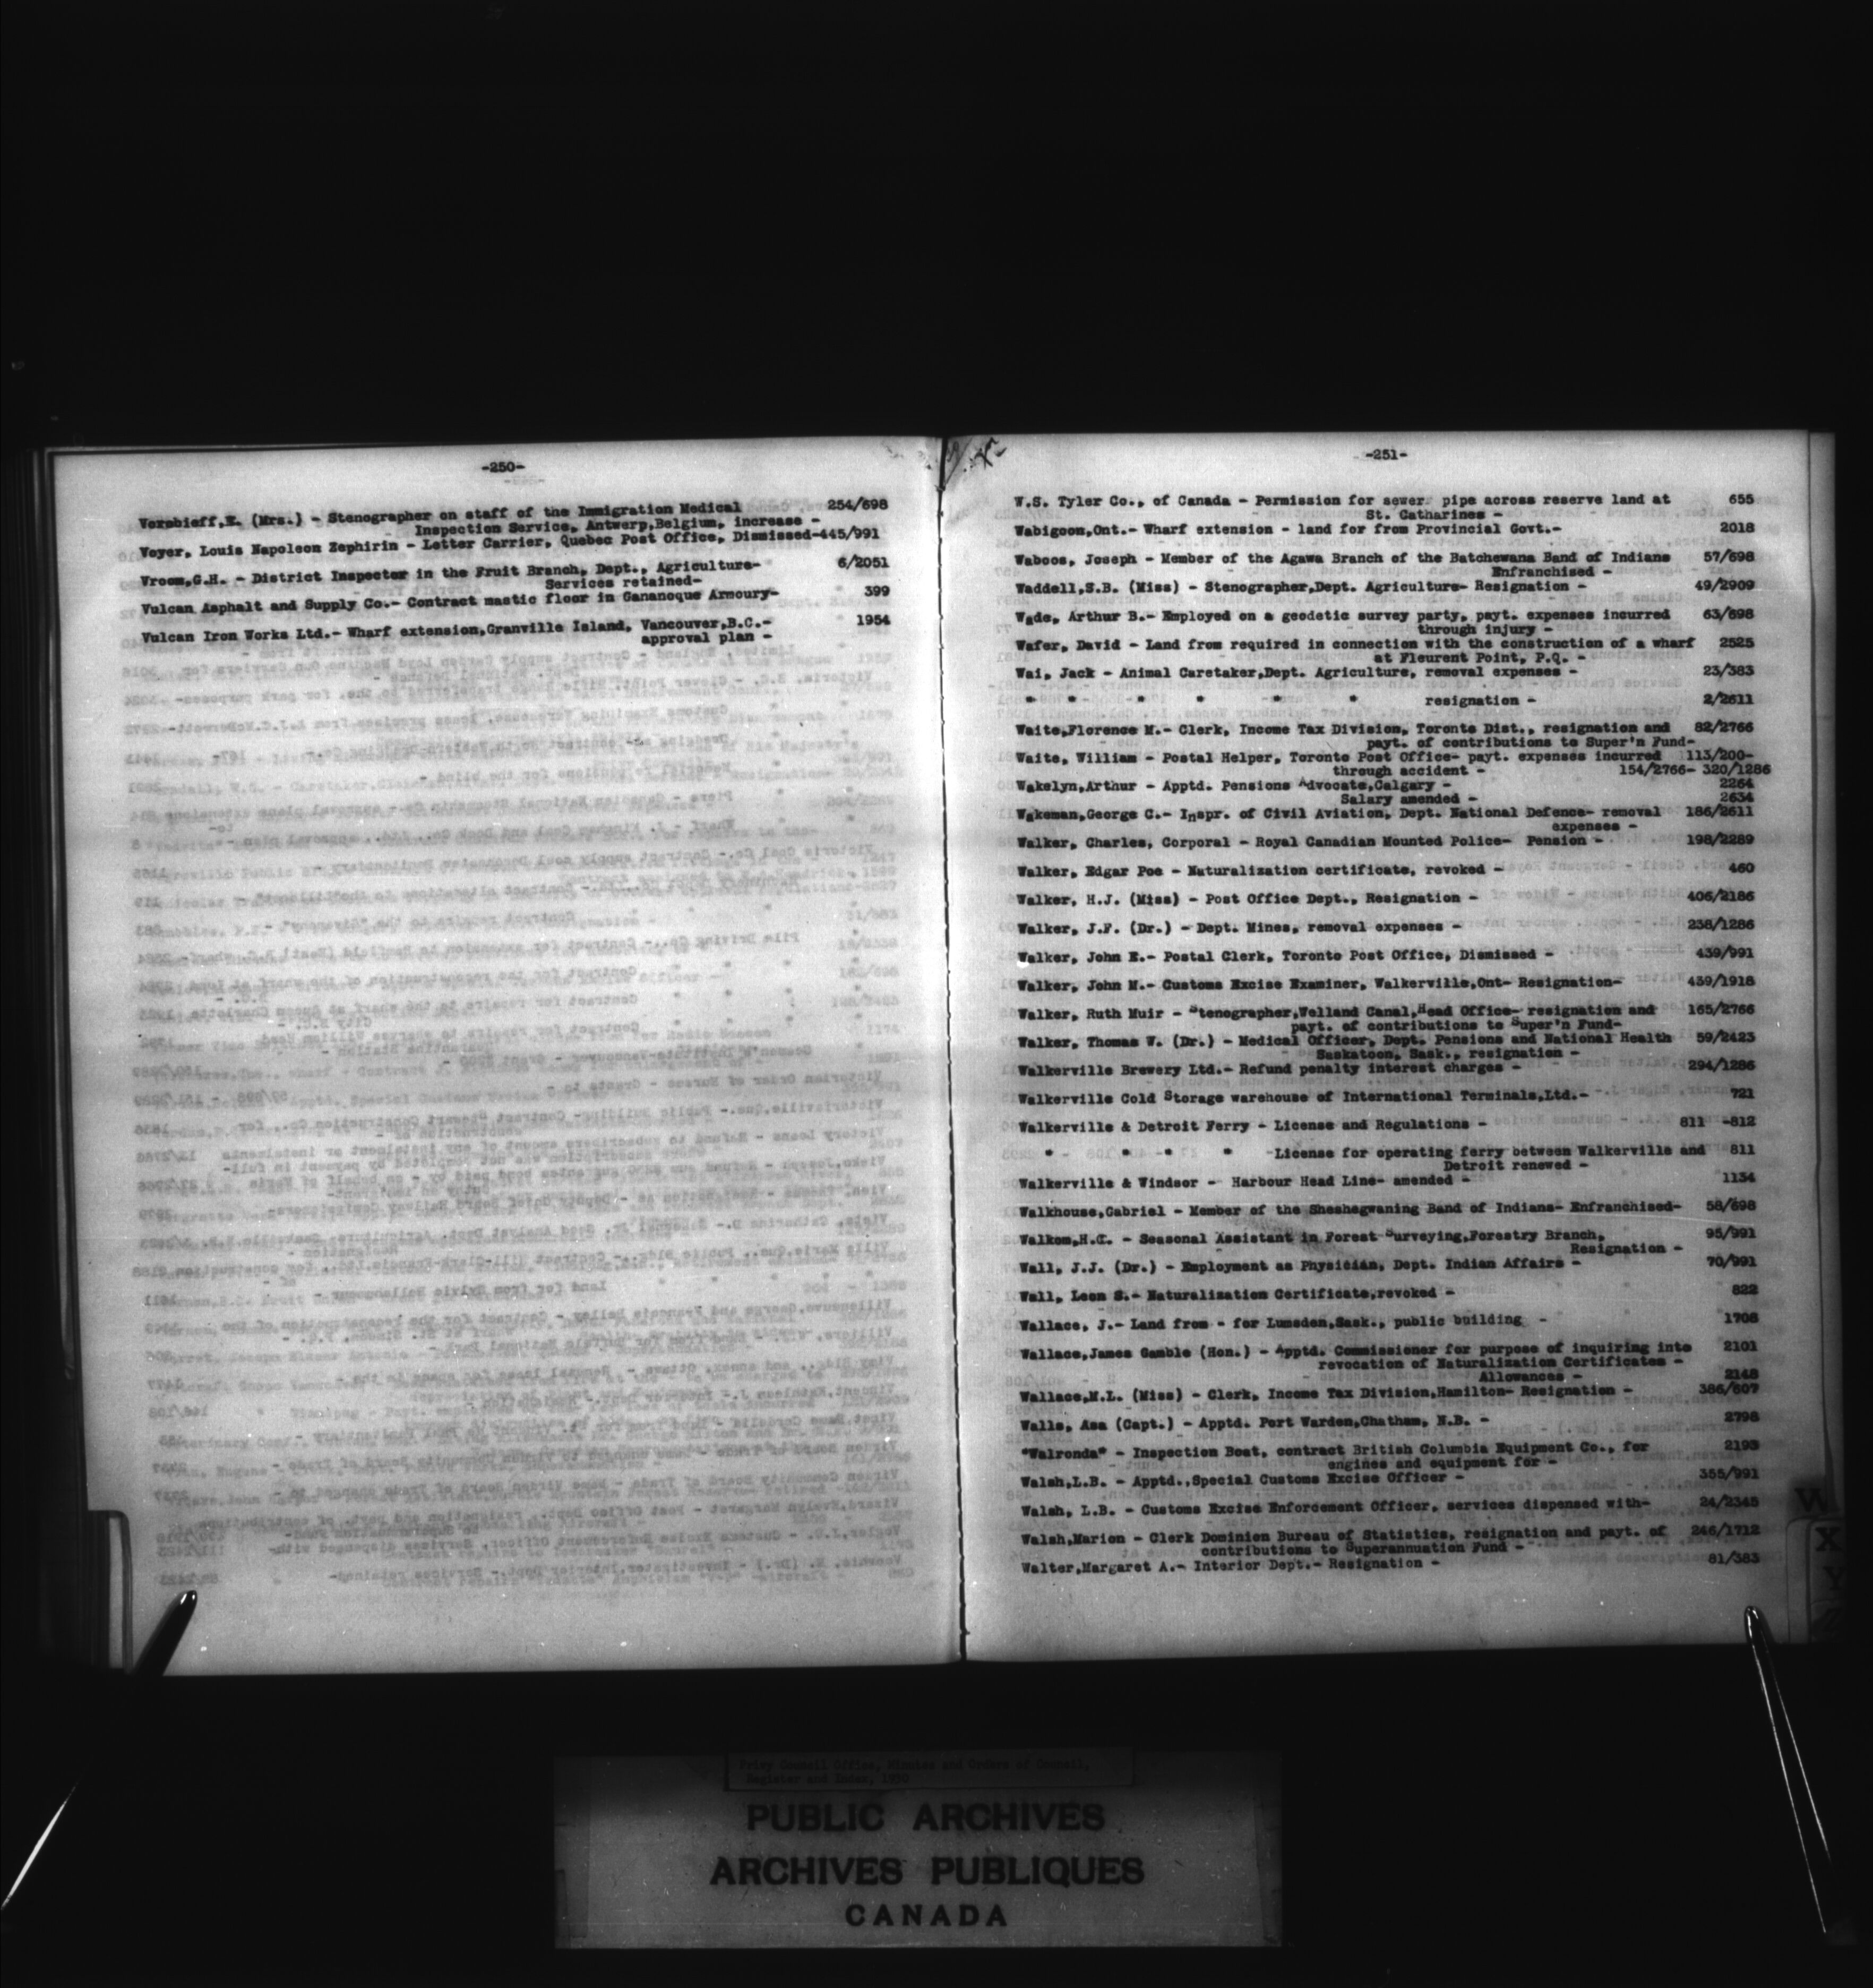 -250-
Vorobieff,E. (Mrs.) - Stenographer on staff of the Immigration Medical 254/698
Inspection Service, Antwerp,Belgium, increase -
Voyer, Louis Napoleon Zephirin - Letter Carrier, Quebec Post Office, Dismissed-445/991
Vroom,G.H. - District Inspector in the Fruit Branch, Dept., Agriculture- 6/2051
Services retained-
Vulcan Asphalt and Supply Co.- Contract mastic floor in Gananoque Armoury- 399
Vulcan Iron Works Ltd.- Wharf extension,Granville Island, Vancouver,B.C.- 1954
approval plan -
-251-
W.S. Tyler Co., of Canada - Permission for sewer pipe across reserve land at 655
St. Catharines -
Wabigoon,Ont.- Wharf extension - land for from Provincial Govt.- 2018
Waboos, Joseph - Member of the Agawa Branch of the Batchewana Band of Indians 57/698
Enfranchised -
Waddell,S.B. (Miss) - Stenographer,Dept. Agriculture- Resignation - 49/2909
Wade, Arthur B.- Employed on a geodetic survey party, payt. expenses incurred 63/698
through injury -
Wafer, David - Land from required in connection with the construction of a wharf 2525
at Fleurent Point, P.Q. -
Wai, Jack - Animal Caretaker,Dept. Agriculture, removal expenses - 23/383
" " " " " " resignation - 2/2611
Waite,Florence M.- Clerk, Income Tax Division, Toronto Dist., resignation and 82/2766
payt. of contributions to Super'n Fund-
Waite, William - Postal Helper, Toronto Post Office- payt. expenses incurred 113/200-
through accident - 154/2766- 320/1286
Wakelyn,Arthur - Apptd. Pensions Advocate,Calgary - 2264
Salary amended - 2634
Wakeman,George C.- Inspr. of Civil Aviation, Dept. National Defence- removal 186/2611
expenses -
Walker, Charles, Corporal - Royal Canadian Mounted Police- Pension - 198/2289
Walker, Edgar Poe - Naturalization certificate, revoked - 460
Walker, H.J. (Miss) - Post Office Dept., Resignation - 406/2186
Walker, J.F. (Dr.) - Dept. Mines, removal expenses - 238/1286
Walker, John E.- Postal Clerk, Toronto Post Office, Dismissed - 439/991
Walker, John M.- Customs Excise Examiner, Walkerville,Ont- Resignation- 439/1918
Walker, Ruth Muir - Stenographer,Welland Canal,Head Office- resignation and 165/2766
payt. of contributions to Super'n Fund-
Walker, Thomas W. (Dr.) - Medical Officer, Dept. Pensions and National Health 59/2423
Saskatoon, Sask., resignation -
Walkerville Brewery Ltd.- Refund penalty interest charges - 294/1286
Walkerville Cold Storage warehouse of International Terminals,Ltd.- 721
Walkerville & Detroit Ferry - License and Regulations - 811 -812
" " " " -License for operating ferry between Walkerville and 811
Detroit renewed -
Walkerville & Windsor - Harbour Head Line- amended - 1134
Walkhouse,Gabriel - Member of the Sheshegwaning Band of Indians- Enfranchised- 58/698
Walkom,H.C. - Seasonal Assistant in Forest Surveying,Forestry Branch, 95/991
Resignation -
Wall, J.J. (Dr.) - Employment as Physician, Dept. Indian Affairs - 70/991
Wall, Leon S.- Naturalization Certificate,revoked - 822
Wallace, J.- Land from - for Lumsden,Sask., public building - 1708
Wallace,James Gamble (Hon.) - Apptd. Commissioner for purpose of inquiring into 2101
revocation of Naturalization Certificates -
Allowances - 2148
Wallace,M.L. (Miss) - Clerk, Income Tax Division,Hamilton- Resignation - 386/607
Walls, Asa (Capt.) - Apptd. Port Warden,Chatham, N.B. - 2798
"Walronda" - Inspection Boat, contract British Columbia Equipment Co., for 2193
engines and equipment for -
Walsh,L.B. - Apptd.,Special Customs Excise Officer - 355/991
Walsh, L.B. - Customs Excise Enforcement Officer, services dispensed with- 24/2345
Walsh,Marion - Clerk Dominion Bureau of Statistics, resignation and payt. of 246/1712
contributions to Superannuation Fund -
Walter,Margaret A.- Interior Dept.- Resignation - 81/383
W
X
Y
Privy Council Office, Minutes and Orders of Council,
Register and Index, 1930
PUBLIC ARCHIVES
ARCHIVES PUBLIQUES
CANADA